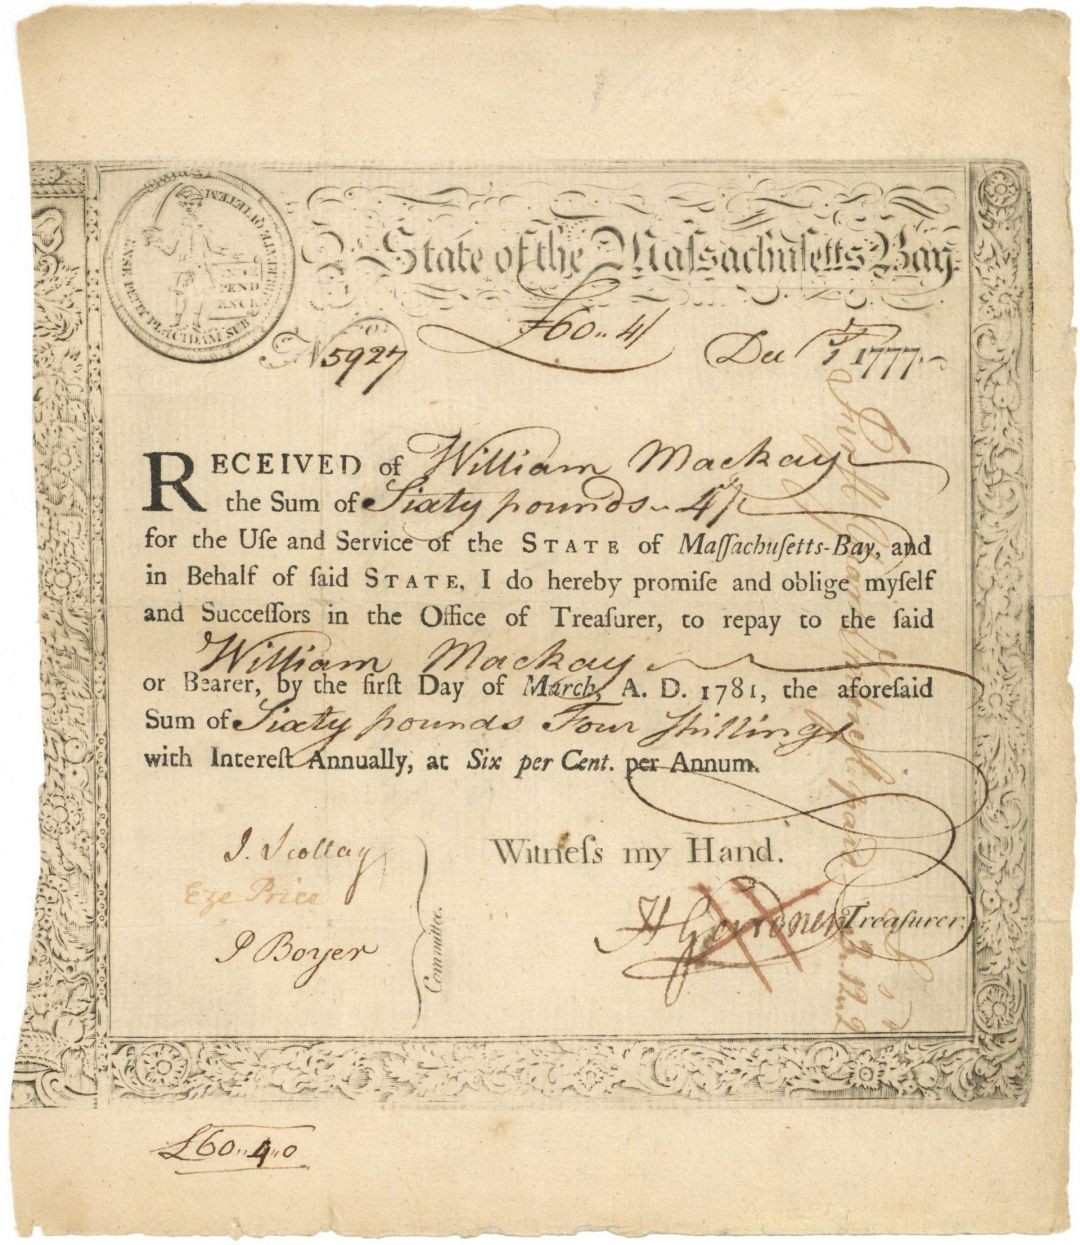 ENSE PETIT PLACIDAM SUB LIBERTATE QUIETEM
INDE
PEND
ENCE
State of the Maſsachuſetts Bay.
£60.. 4/
No 5927
Dec 1st 1777
RECEIVED of William Mackay
the Sum of Sixty pounds 4/
for the Uſe and Service of the STATE of Maſſachuſetts-Bay, and
in Behalf of ſaid STATE, I do hereby promiſe and oblige myſelf
and Succeſſors in the Office of Treaſurer, to repay to the ſaid
William Mackay
or Bearer, by the firſt Day of March, A. D. 1781, the aforeſaid
Sum of Sixty pounds Four ſhillings
with Intereſt Annually, at Six per Cent. per Annum.
Witneſs my Hand.
J. Scollay
Eze Price
P Boyer
Committee.
H Gardner Treaſurer.
Firſt Years Intereſt paid
£60.. 4.. 0